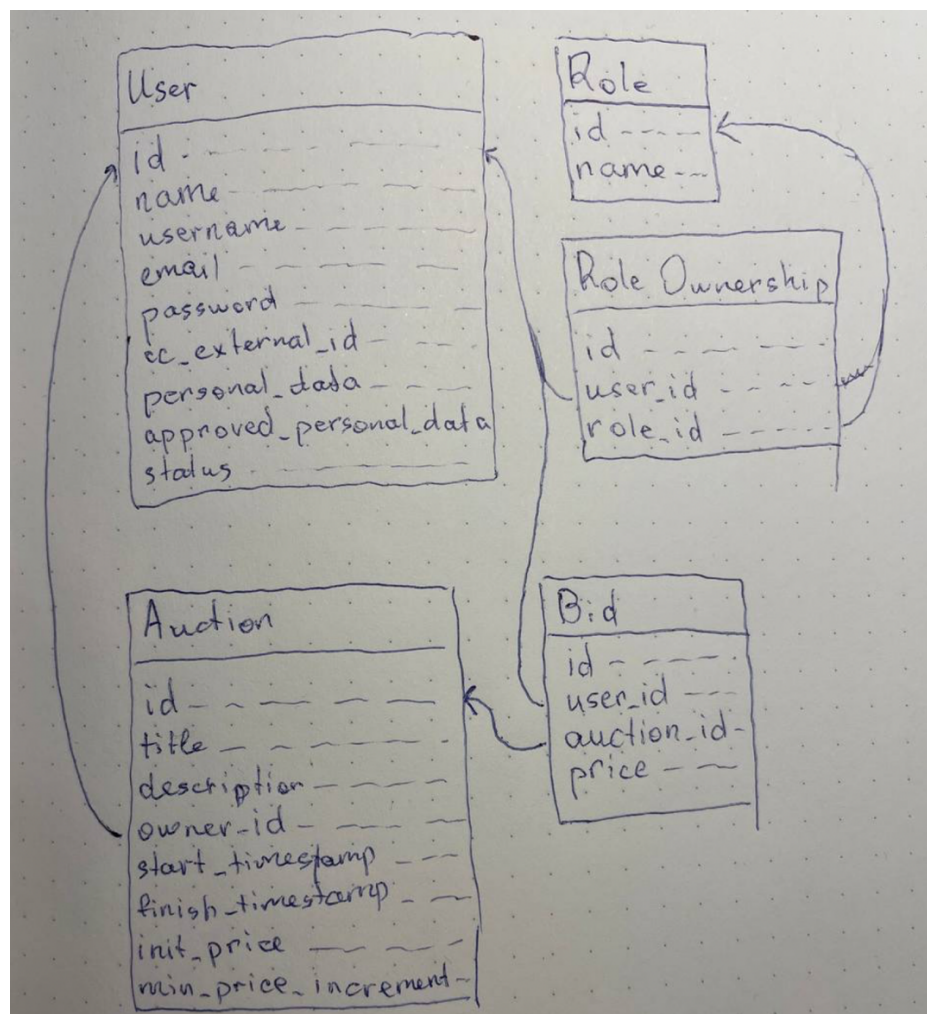 User
id
name
username
email
password
cc_external_id
personal_data
approved_personal_data
status
Role
id
name
Role Ownership
id
user_id
role_id
Auction
id
title
description
owner_id
start_timestamp
finish_timestamp
init_price
min_price_increment
Bid
id
user_id
auction_id
price